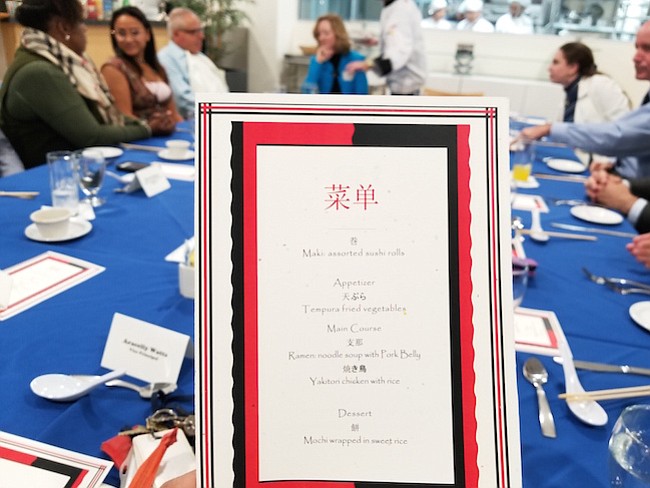 菜单
巻
Maki: assorted sushi rolls
Appetizer
天ぷら
Tempura fried vegetables
Main Course
支那
Ramen: noodle soup with Pork Belly
焼き鳥
Yakitori chicken with rice
Dessert
餅
Mochi wrapped in sweet rice
Aracelly Watts
Vice Principal